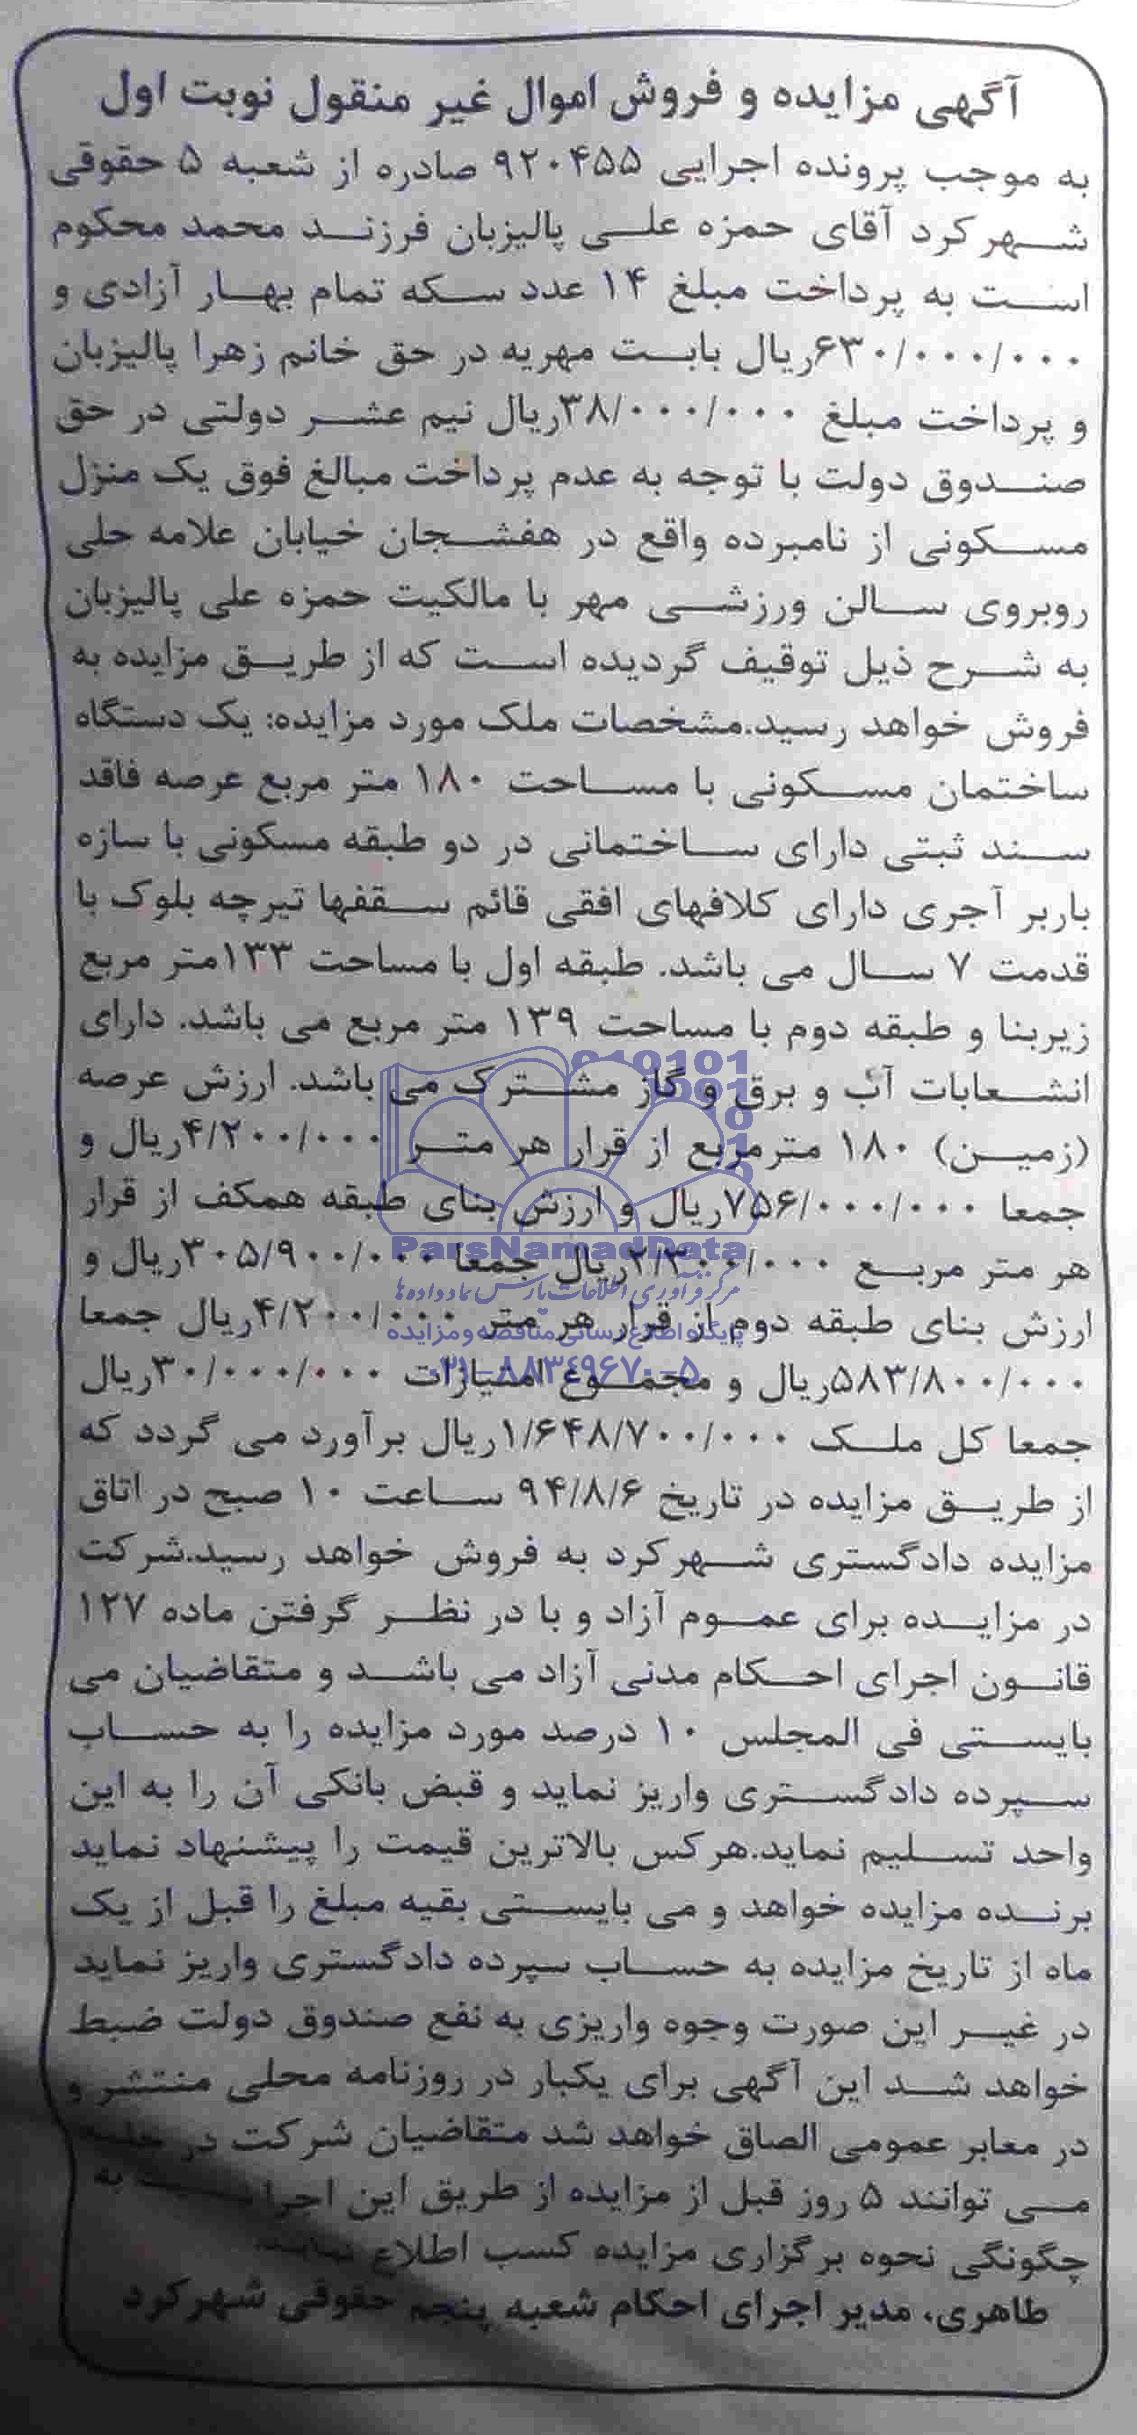 آگهی مزایده و فروش اموال غیر منقول نوبت اول
به موجب پرونده اجرایی ۹۲۰۴۵۵ صادره از شعبه ۵ حقوقی
شهرکرد آقای حمزه علی پالیزبان فرزند محمد محکوم
است به پرداخت مبلغ ۱۴ عدد سکه تمام بهار آزادی و
۶۳۰/۰۰۰/۰۰۰ریال بابت مهریه در حق خانم زهرا پالیزبان
و پرداخت مبلغ ۳۸/۰۰۰/۰۰۰ریال نیم عشر دولتی در حق
صندوق دولت با توجه به عدم پرداخت مبالغ فوق یک منزل
مسکونی از نامبرده واقع در هفشجان خیابان علامه حلی
روبروی سالن ورزشی مهر با مالکیت حمزه علی پالیزبان
به شرح ذیل توقیف گردیده است که از طریق مزایده به
فروش خواهد رسید.مشخصات ملک مورد مزایده: یک دستگاه
ساختمان مسکونی با مساحت ۱۸۰ متر مربع عرصه فاقد
سند ثبتی دارای ساختمانی در دو طبقه مسکونی با سازه
باربر آجری دارای کلافهای افقی قائم سقفها تیرچه بلوک با
قدمت ۷ سال می باشد. طبقه اول با مساحت ۱۳۳متر مربع
زیربنا و طبقه دوم با مساحت ۱۳۹ متر مربع می باشد. دارای
انشعابات آب و برق و گاز مشترک می باشد. ارزش عرصه
(زمین) ۱۸۰ مترمربع از قرار هر متر ۴/۲۰۰/۰۰۰ریال و
جمعا ۷۵۶/۰۰۰/۰۰۰ریال و ارزش بنای طبقه همکف از قرار
هر متر مربع ۲/۳۰۰/۰۰۰ریال جمعا ۳۰۵/۹۰۰/۰۰۰ریال و
ارزش بنای طبقه دوم از قرار هر متر ۴/۲۰۰/۰۰۰ریال جمعا
۵۸۳/۸۰۰/۰۰۰ریال و مجموع امتیازات ۳۰/۰۰۰/۰۰۰ریال
جمعا کل ملک ۱/۶۴۸/۷۰۰/۰۰۰ریال برآورد می گردد که
از طریق مزایده در تاریخ ۹۴/۸/۶ ساعت ۱۰ صبح در اتاق
مزایده دادگستری شهرکرد به فروش خواهد رسید.شرکت
در مزایده برای عموم آزاد و با در نظر گرفتن ماده ۱۲۷
قانون اجرای احکام مدنی آزاد می باشد و متقاضیان می
بایستی فی المجلس ۱۰ درصد مورد مزایده را به حساب
سپرده دادگستری واریز نماید و قبض بانکی آن را به این
واحد تسلیم نماید.هرکس بالاترین قیمت را پیشنهاد نماید
برنده مزایده خواهد و می بایستی بقیه مبلغ را قبل از یک
ماه از تاریخ مزایده به حساب سپرده دادگستری واریز نماید
در غیر این صورت وجوه واریزی به نفع صندوق دولت ضبط
خواهد شد این آگهی برای یکبار در روزنامه محلی منتشر و
در معابر عمومی الصاق خواهد شد متقاضیان شرکت در
می توانند ۵ روز قبل از مزایده از طریق این اجرا به
چگونگی نحوه برگزاری مزایده کسب اطلاع نمایند.
طاهری، مدیر اجرای احکام شعبه پنجم حقوقی شهرکرد
ParsNamadData
مرکز فرآوری اطلاعات پارس نماد داده ها
پایگاه اطلاع رسانی مناقصه و مزایده
۰۲۱-۸۸۳۴۹۶۷۰-۵